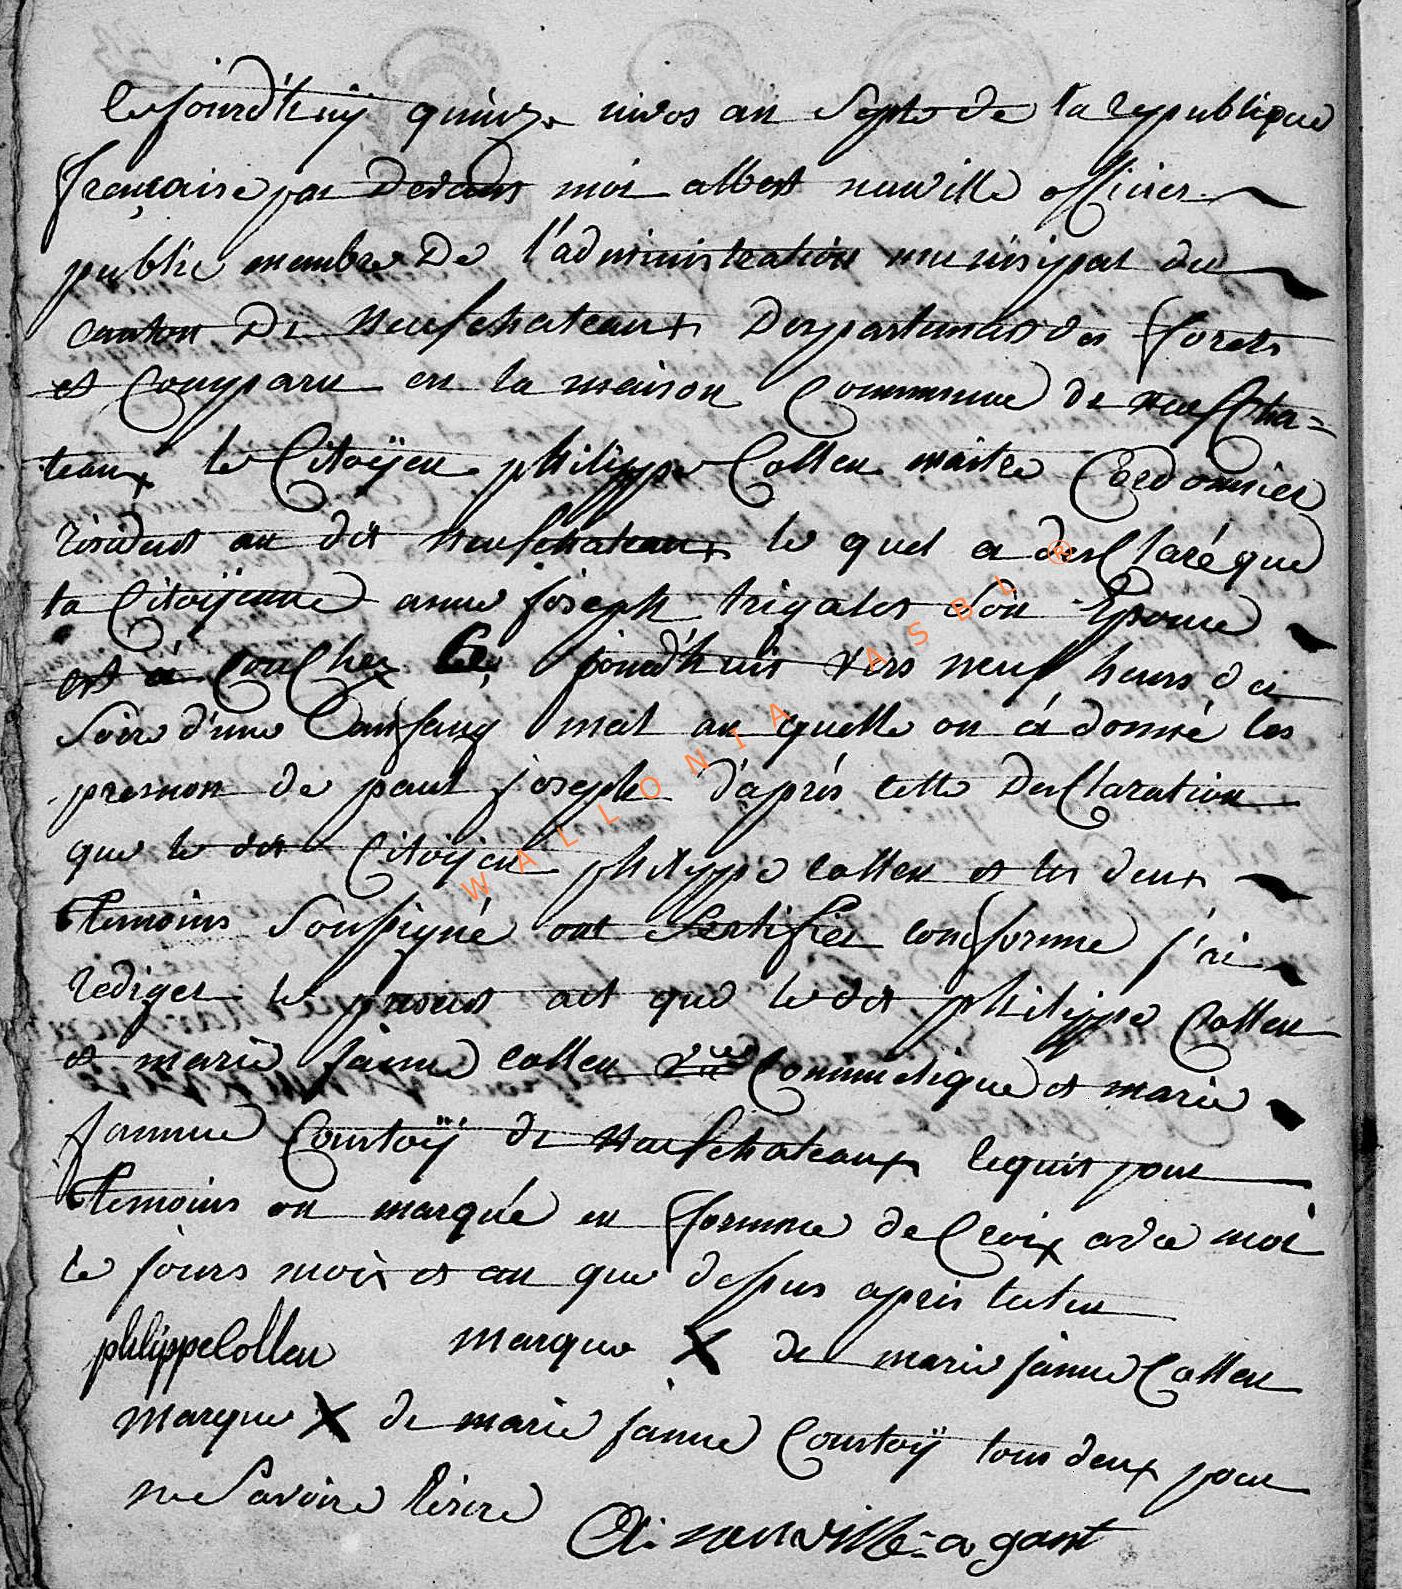 Cejourd'huÿ quinze nivos an Septe de la republique
française par devant moi albert neuville officier
public membre De l'administration munisipal du
canton De Neufchateaux Despartement des forets
et Comparu en la maison Commune de neufcha=
teaux le Citoÿen philippe Collen maitre Cordonnier
résident au dit Neufchateaux le quel a desClaré que
la Citoÿenne anne joseph trigalet Son Epouse
est à CouChez Ce jourd'huis vers neuf heurs du
Soire d'une Eanfang mal au quelle on à donné les
presnon de paul joseph d'aprés cette DesClaration
que le dit Citoÿen philippe Collen et les deux
temoins Soussigné ont Sertifier conforme j'ai
rediger le present act que le dit philippe Collen
et marie janne collen et marie
janne Courtoÿ de Neufchateaux lequis pour
temoins on marqué en forme de Croix avec moi
le jours mois et an que dessus apris lecture
philippe Collen marque X de marie janne Collen
marque X de marie janne Courtoÿ tous deux pour
ne Savoire Ecrire
A: neuville = agant
WALLONIA ASBL ®